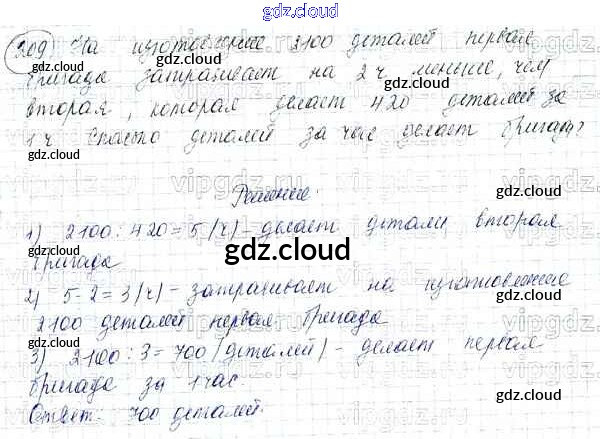 gdz.cloud
209 На изготовление 2100 деталей первая
gdz.cloud gdz.cloud
бригада затрачивает на 2 ч меньше, чем
вторая, которая делает 420 деталей за
1 ч. Сколько деталей за час делает бригада?
gdz.cloud gdz.cloud
Решение.
gdz.cloud
1) 2100 : 420 = 5 (ч) - делает детали вторая
бригада
gdz.cloud
gdz.cloud
2) 5 - 2 = 3 (ч) - затрачивает на изготовление
2100 деталей первая бригада
gdz.cloud gdz.cloud
3) 2100 : 3 = 700 (деталей) - делает первая
бригада за 1 час.
gdz.cloud
Ответ: 700 деталей.
gdz.cloud gdz.cloud